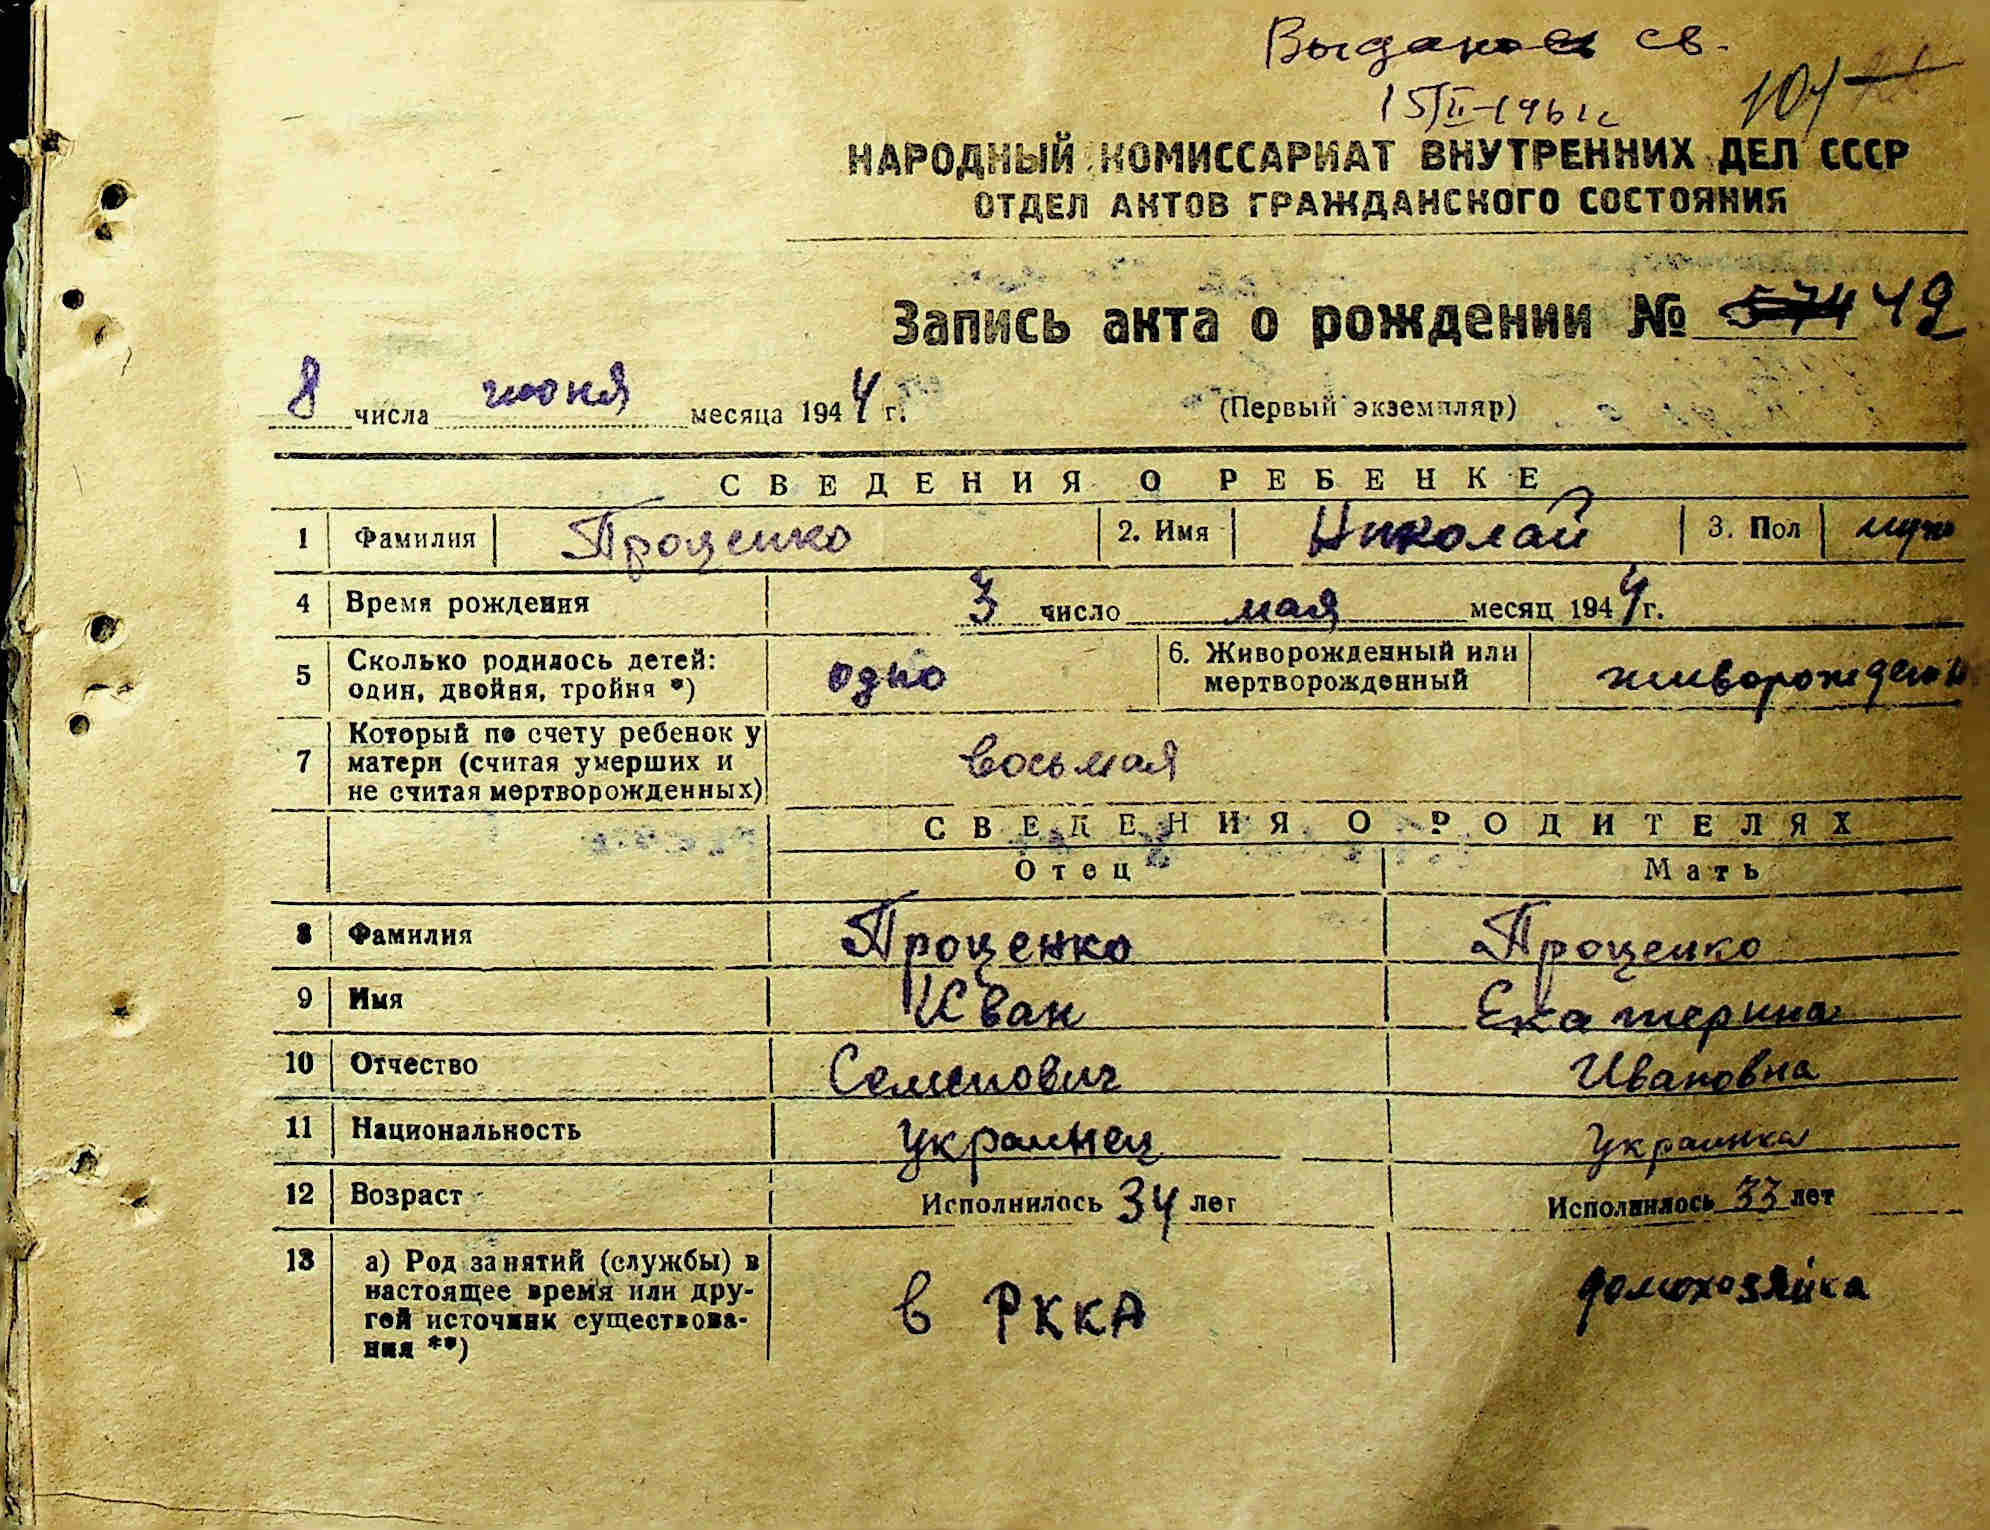 Выданое св.
15/II-1961г
101
НАРОДНЫЙ КОМИССАРИАТ ВНУТРЕННИХ ДЕЛ СССР
ОТДЕЛ АКТОВ ГРАЖДАНСКОГО СОСТОЯНИЯ
Запись акта о рождении № 574 49
8 числа июня месяца 1944 г. (Первый экземпляр)
СВЕДЕНИЯ О РЕБЕНКЕ
1 Фамилия Проценко 2. Имя Николай 3. Пол муж
4 Время рождения 3 число мая месяц 1944 г.
5 Сколько родилось детей: один, двойня, тройня *) одно 6. Живорожденный или мертворожденный живорожден
7 Который по счету ребенок у матери (считая умерших и не считая мертворожденных) восьмая
СВЕДЕНИЯ О РОДИТЕЛЯХ
Отец Мать
8 Фамилия Проценко Проценко
9 Имя Иван Екатерина
10 Отчество Семенович Ивановна
11 Национальность украинец украинка
12 Возраст Исполнилось 34 лет Исполнилось 33 лет
13 а) Род занятий (службы) в настоящее время или дру-
гой источник существова-
ния **) в РККА домохозяйка